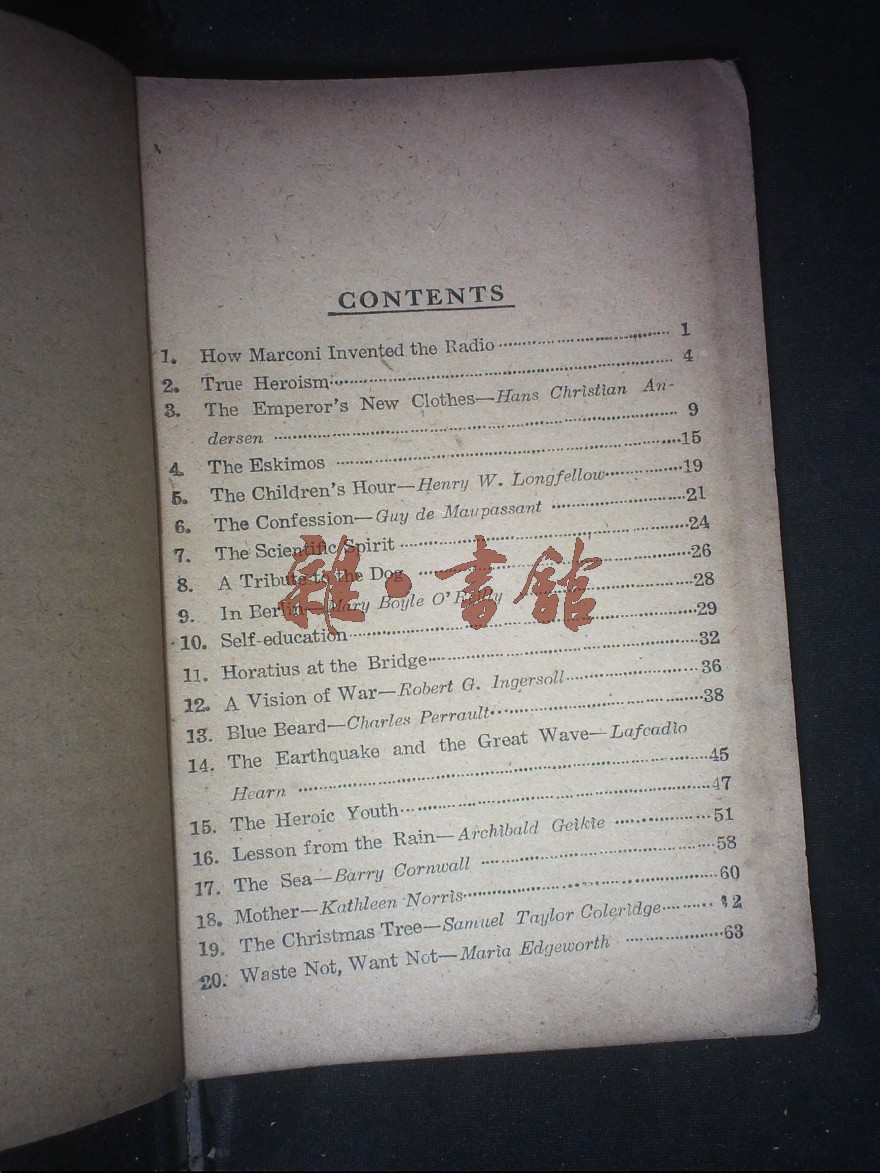 CONTENTS
1. How Marconi Invented the Radio 1
2. True Heroism 4
3. The Emperor's New Clothes—Hans Christian An-
dersen 9
4. The Eskimos 15
5. The Children's Hour—Henry W. Longfellow 19
6. The Confession—Guy de Maupassant 21
7. The Scientific Spirit 24
8. A Tribute to the Dog 26
9. In Berlin—Mary Boyle O'Reilly 28
10. Self-education 29
11. Horatius at the Bridge 32
12. A Vision of War—Robert G. Ingersoll 36
13. Blue Beard—Charles Perrault 38
14. The Earthquake and the Great Wave—Lafcadio
Hearn 45
15. The Heroic Youth 47
16. Lesson from the Rain—Archibald Geikie 51
17. The Sea—Barry Cornwall 58
18. Mother—Kathleen Norris 60
19. The Christmas Tree—Samuel Taylor Coleridge
20. Waste Not, Want Not—Maria Edgeworth 63
雜·書舘